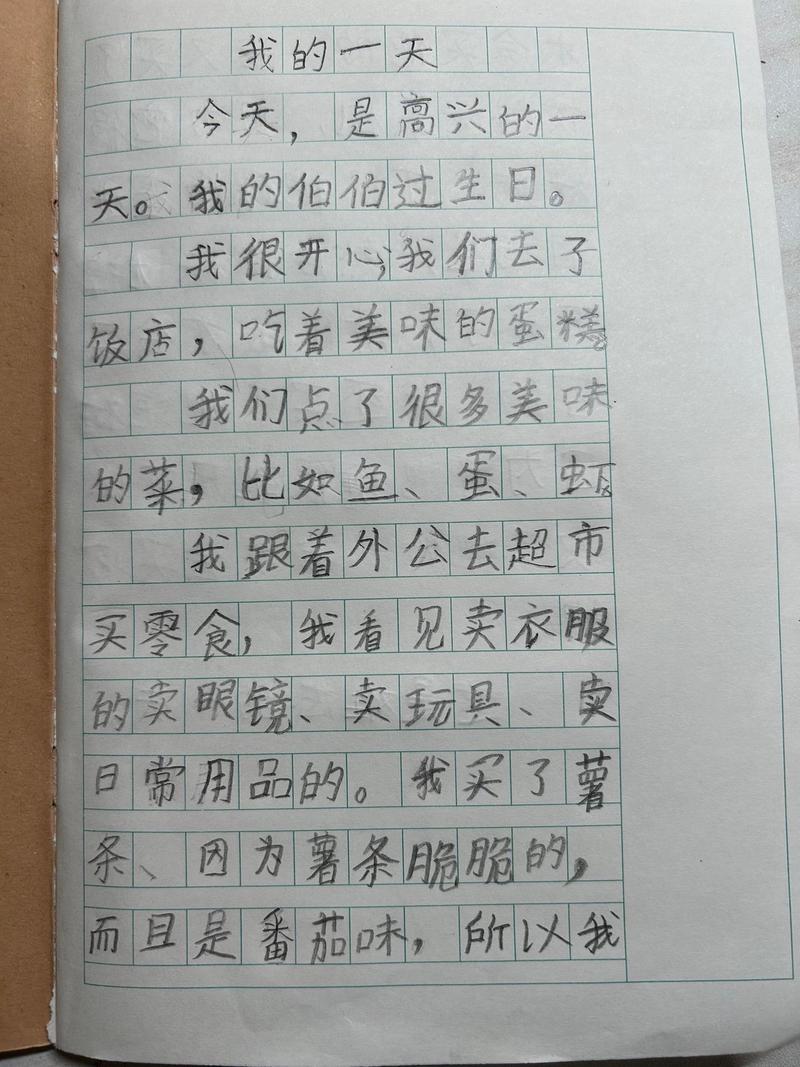 我的一天
今天，是高兴的一
天。我的伯伯过生日。
我很开心，我们去了
饭店，吃着美味的蛋糕。
我们点了很多美味
的菜，比如鱼、蛋、虾。
我跟着外公去超市
买零食，我看见卖衣服
的卖眼镜、卖玩具、卖
日常用品的。我买了薯
条、因为薯条脆脆的，
而且是番茄味，所以我